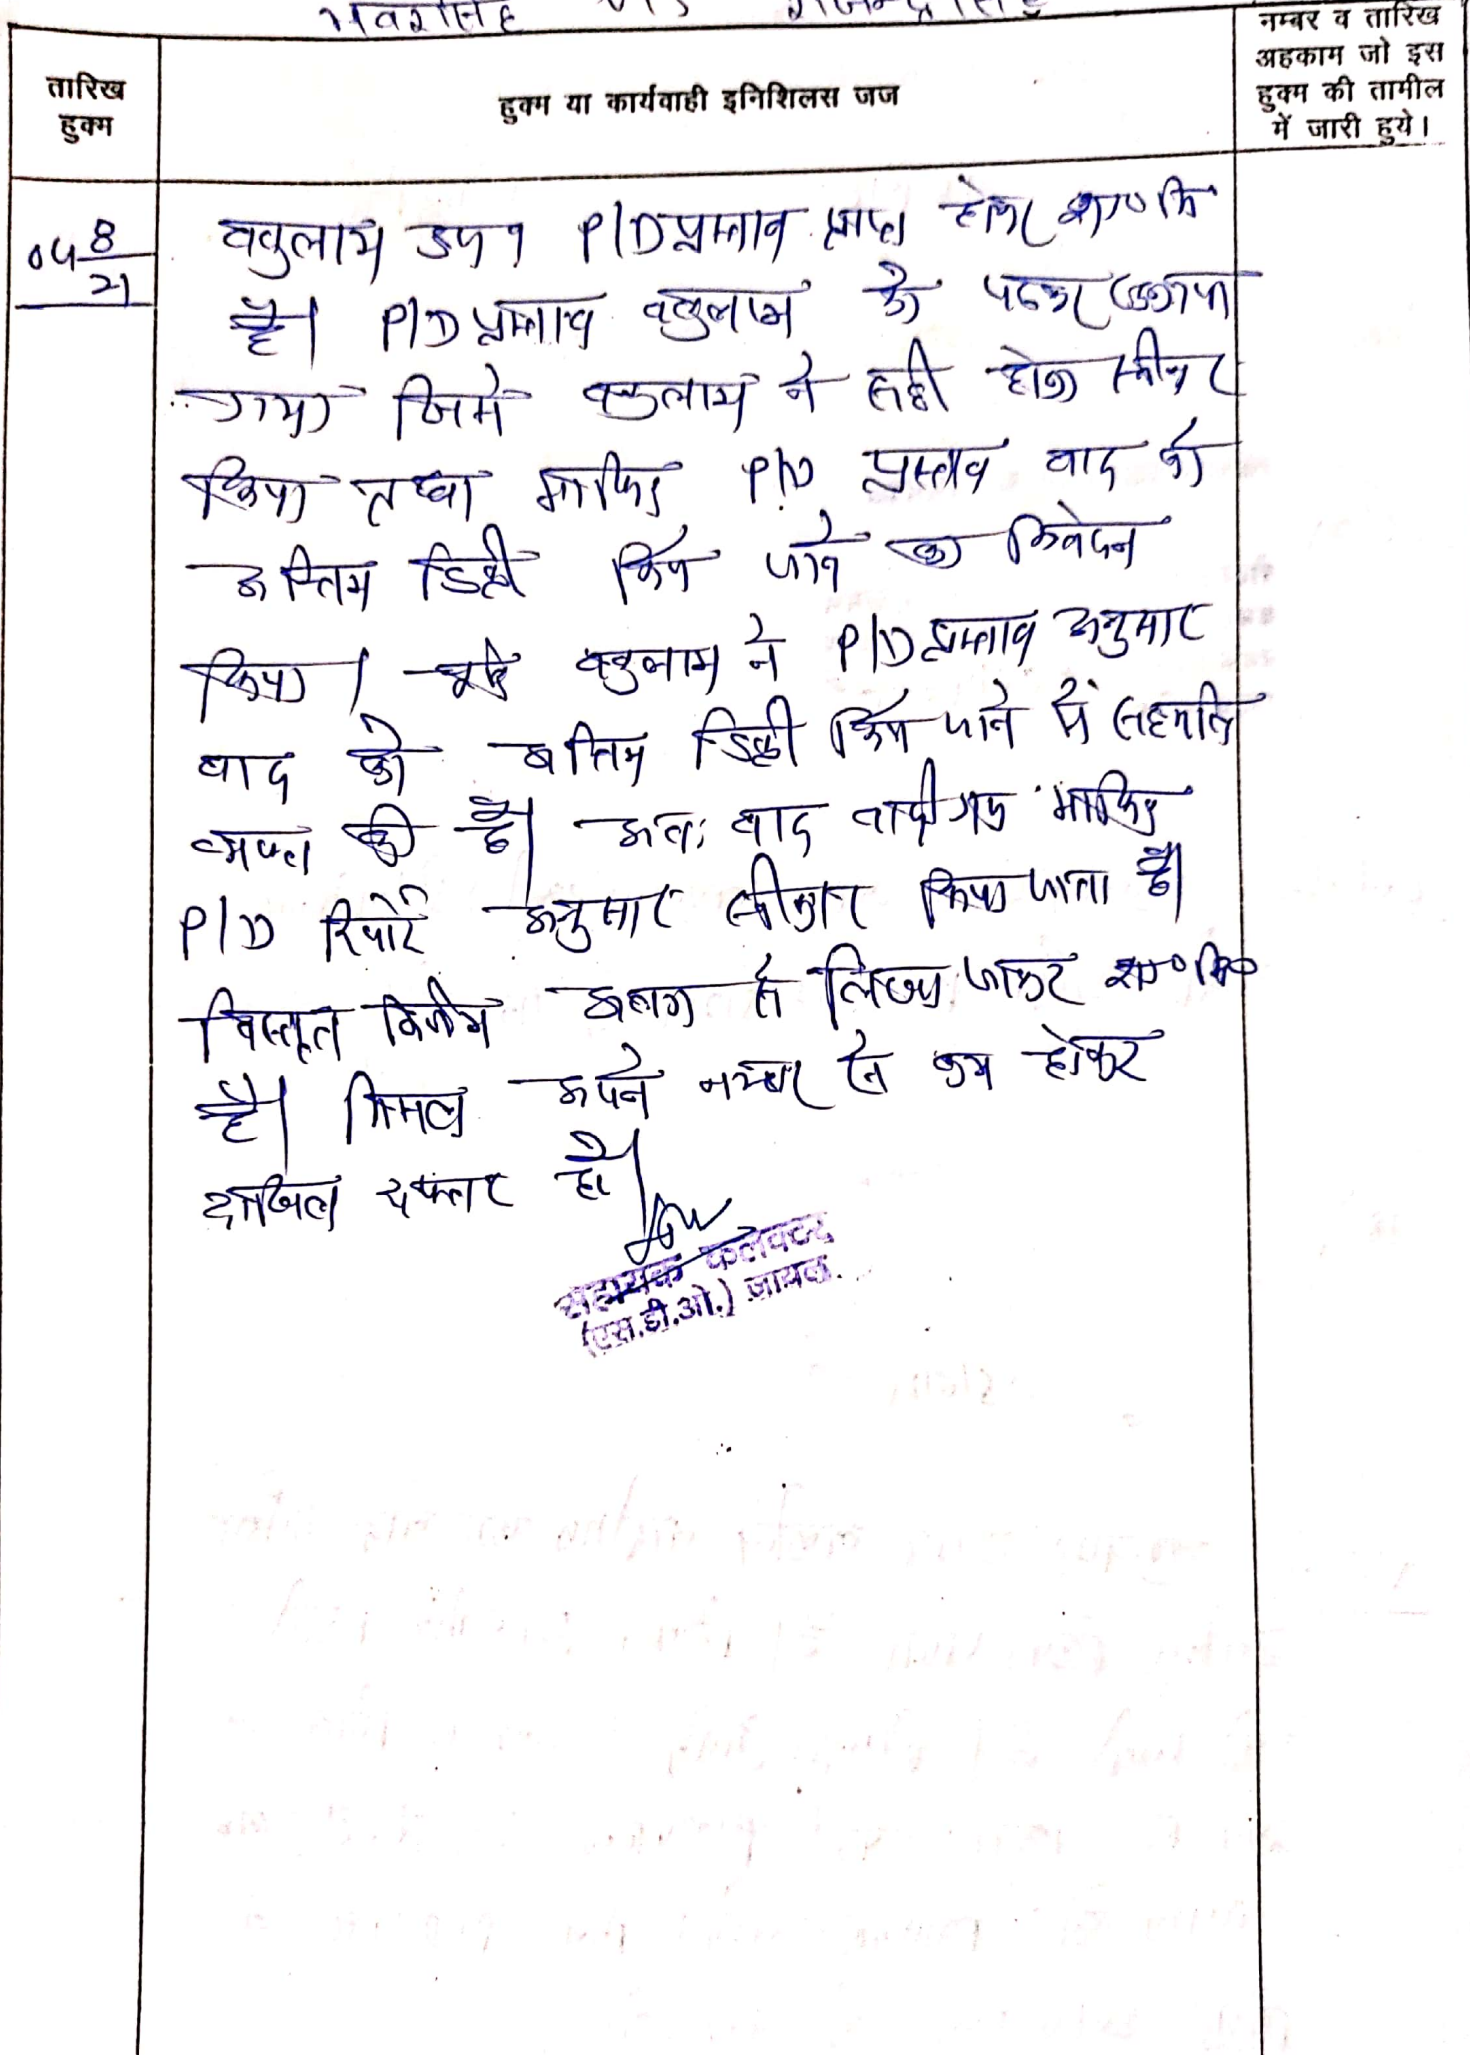 तारिख
हुक्म
हुक्म या कार्यवाही इनिशिलस जज
नम्बर व तारिख
अहकाम जो इस
हुक्म की तामील
में जारी हुये।
04 8/21
वकुलाय उप० P/D प्रस्ताव प्राप्त होकर शा०मि
है। P/D प्रस्ताव वकुलाय को पढकर सुनाया
गया जिसे वकुलाय ने सही होना स्वीकार
किया तथा माफिक P/D प्रस्ताव वाद को
अन्तिम डिक्री किये जाने का निवेदन
किया। चूंकि वकुलाय ने P/D प्रस्ताव अनुसार
वाद को अन्तिम डिक्री किये जाने में सहमति
व्यक्त की है। अतः वाद वादीगण माफिक
P/D रिपोर्ट अनुसार स्वीकार किया जाता है।
विस्तृत निर्णय अलग से लिखा जाकर शा०मि०
है। मिसल अपने नम्बर से कम होकर
दाखिल दफ्तर हो।
सहायक कलेक्टर
(एस.डी.ओ.) जायल